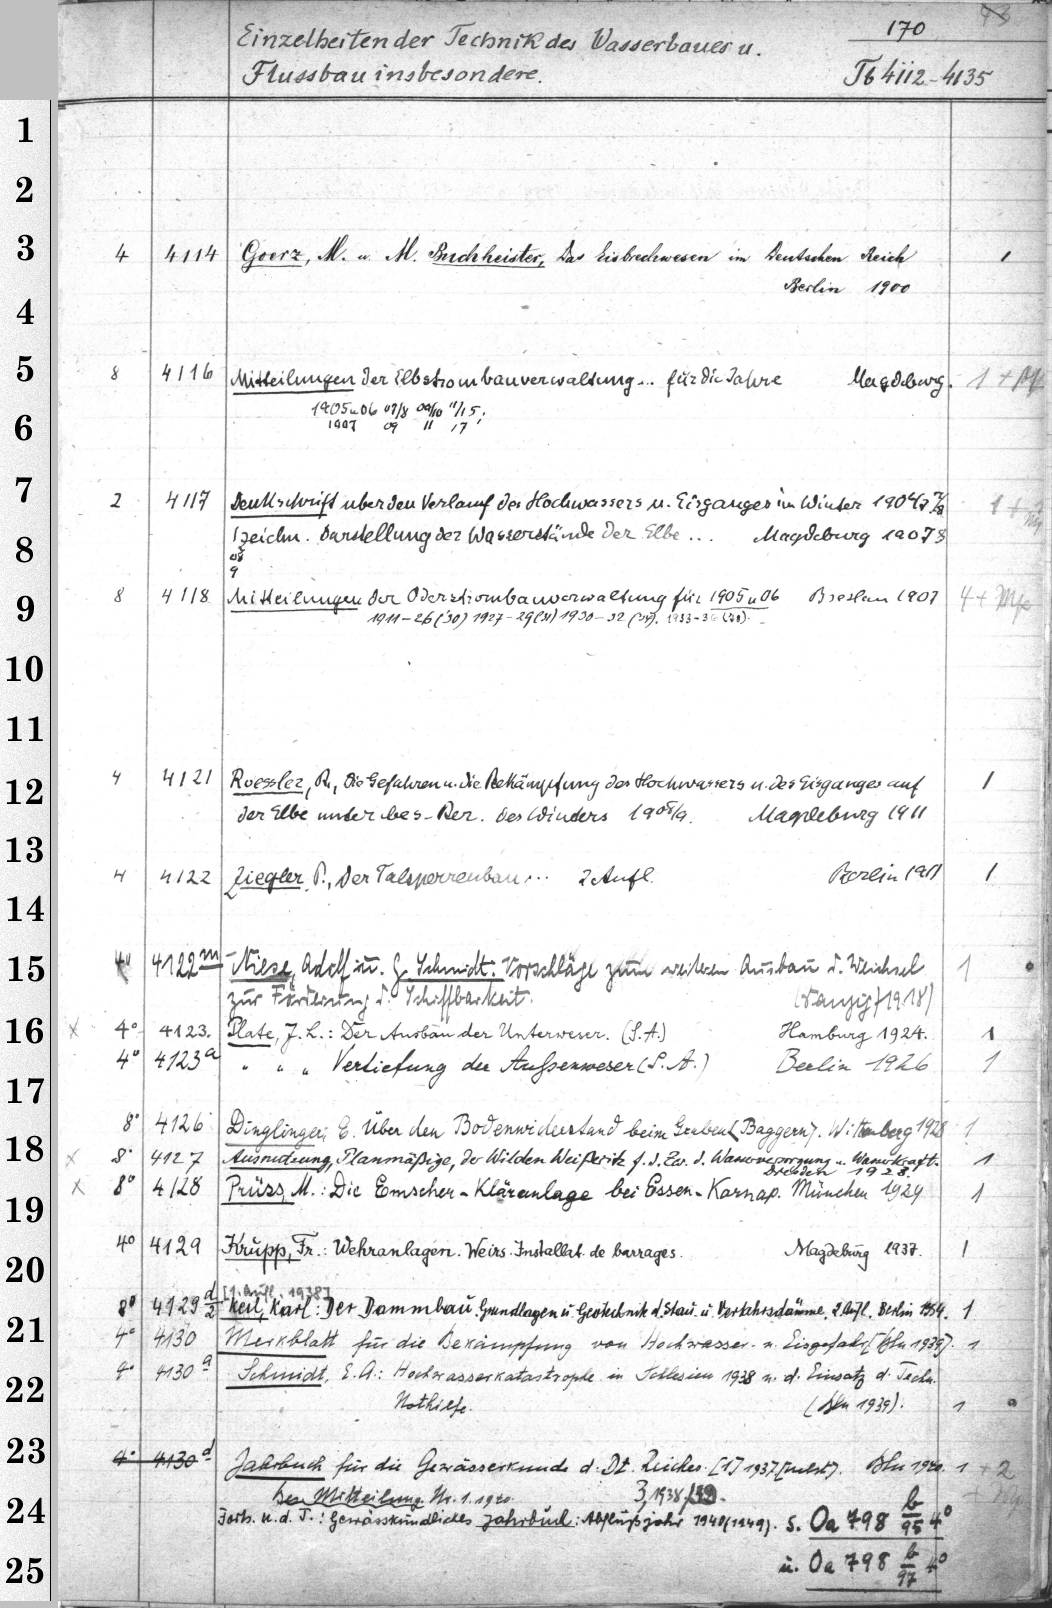 170
Einzelheiten der Technik des Wasserbaues u.
Flussbau insbesondere.
Tb 4112-4135
1
2
3 4 4114 Goerz, M. u. M. Buchheister, Das Eisbrechwesen im Deutschen Reich 1
Berlin 1900
4
5 8 4116 Mitteilungen der Elbstrombauverwaltung... für die Jahre Magdeburg. 1 +
1905u06 07/8 09/10 11/15;
1907 09 11 17
6
7 2 4117 Denkschrift über den Verlauf des Hochwassers u. Eisganges im Winter 1 +
8 Zeichn. Darstellung der Wasserstände der Elbe ... Magdeburg 1907 8
08
9
9 8 4118 Mitteilungen der Oderstrombauverwaltung für 1905 u 06 Breslau 1907 4 +
1911-26 (30) 1927-29(31) 1930-32 (34). 1933-36 (38).
10
11
12 4 4121 Roessler, R., Die Gefahren u. die Bekämpfung des Hochwassers u. des Eisganges auf 1
der Elbe unter bes. Ber. des Winters 1908/9. Magdeburg 1911
13
14 4 4122 Ziegler, P., Der Talsperrenbau... 2 Aufl. Berlin 1911 1
15 4° 4122 m Niese, Adolf u. G. Schmidt: Vorschläge zum weiteren Ausbau d. Weichsel 1
zur Förderung d. Schiffbarkeit. (Danzig) 1918)
16 x 4° 4123. Plate, J. L.: Der Ausbau der Unterweser. (S.A.) Hamburg 1924. 1
4° 4123 a " " " Vertiefung der Außenweser (S. A.) Berlin 1926 1
17
8° 4126 Dinglinger, E. Über den Bodenwiderstand beim Graben (Baggern). Wittenberg 1928 1
18 x 8° 4127 Ausnutzung, Planmäßige, der Wilden Weißeritz f. d. Zw. d. Wasserversorgung u. Wasserkraft. 1
Dresden 1928.
x 8° 4128 Prüss, M.: Die Emscher-Kläranlage bei Essen-Karnap. München 1929 1
19
4° 4129 Krupp, Fr.: Wehranlagen. Weirs. Installat. de barrages. Magdeburg 1937. 1
20
[1. Aufl. 1938]
8° 4129 d/2 Keil, Karl: Der Dammbau. Grundlagen u. Geotechnik d. Stau- u. Verkehrsdämme. 2. Aufl. Berlin 1954. 1
21 4° 4130 Merkblatt für die Bekämpfung von Hochwasser- u. Eisgefahr. (Bln 1939). 1
4° 4130 a Schmidt, E. A.: Hochwasserkatastrophe in Schlesien 1938 u. d. Einsatz d. Techn.
22 Nothilfe. (Bln 1939). 1
23 4° 4130 d Jahrbuch für die Gewässerkunde d. Dt. Reiches. [1] 1937 Bln 1940. 1 + 2
Bes. Mitteilung Nr. 1. 1940. 3, 1938/39.
24 Forts. u. d. T.: Gewässkundliches Jahrbuch: Abflußjahr 1940(1949). s. Oa 798 b/95 4°
25 u. Oa 798 b/97 4°